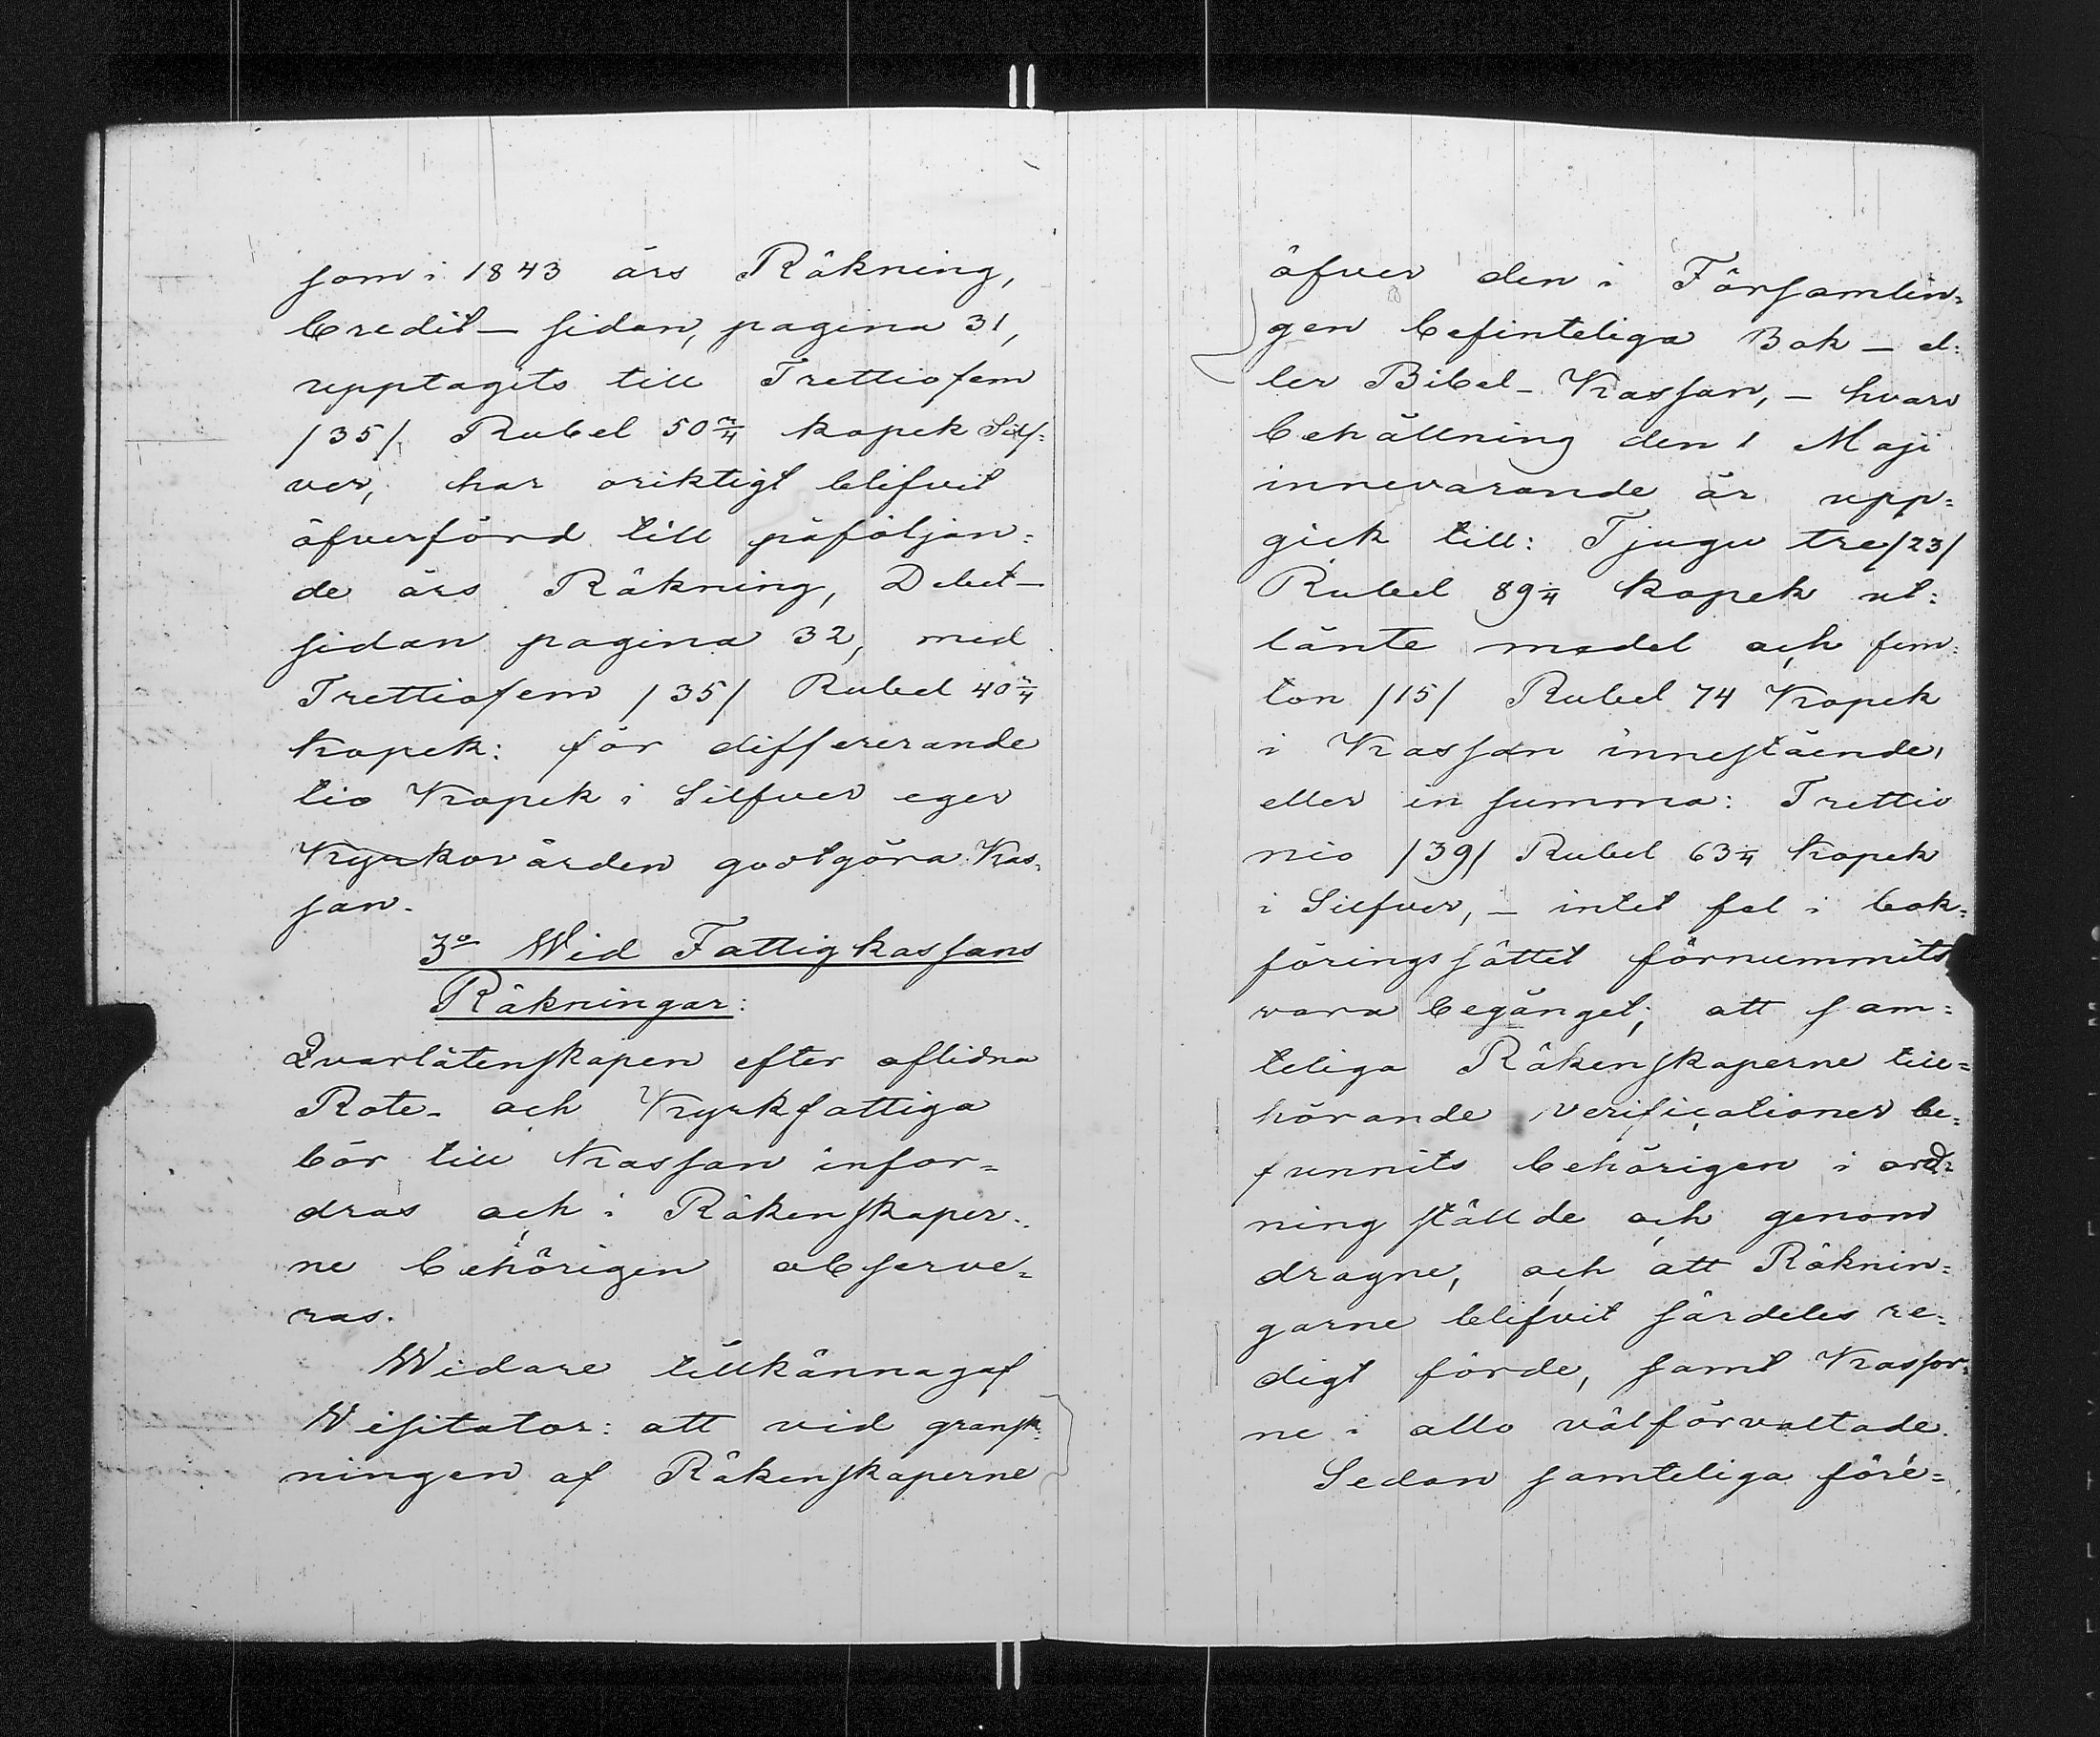 som i 1843 års Räkning,
Credit – sidan, pagina 31,
upptagits till Trettiofem
/35/ Rubel 50 3/4 kopek Silf=
ver, har oriktigt blifvit
öfverförd till påföljan=
de års Räkning, Debet –
sidan pagina 32, med
Trettiofem /35/ Rubel 40 3/4
Kopek: för differerande
tio Kopek i Silfver eger
Kyrkovärden godtgöra Kas=
san.
3o Wid Fattigkassans
Räkningar:
Qvarlåtenskapen efter aflidna
Rote- och Kyrkfattiga
bör till Kassan infor=
dras och i Räkenskaper=
ne behörigen observe=
ras.
Widare tillkännagaf
Visitator: att vid gransk=
ningen af Räkenskaperne
öfver den i Församlin=
gen befinteliga Bok – el=
ler Bibel – Kassan, – hvars
behållning den 1 Maji
innevarande år upp=
gick till: Tjugu tre /23/
Rubel 89 1/4 Kopek ut=
lånte medel och fem=
ton /15/ Rubel 74 Kopek
i Kassan innestående,
eller in summa: Trettio
nio /39/ Rubel 63 1/4 Kopek
i Silfver, – intet fel i bok=
föringssättet förnummits
vara begånget; att sam=
teliga Räkenskaperne till=
hörande verificationer be=
funnits behörigen i ord=
ning ställde och genom
dragne, och att Räknin=
garne blifvit särdeles re=
digt förde, samt Kassor=
ne i allo välförvaltade.
Sedan samteliga före=